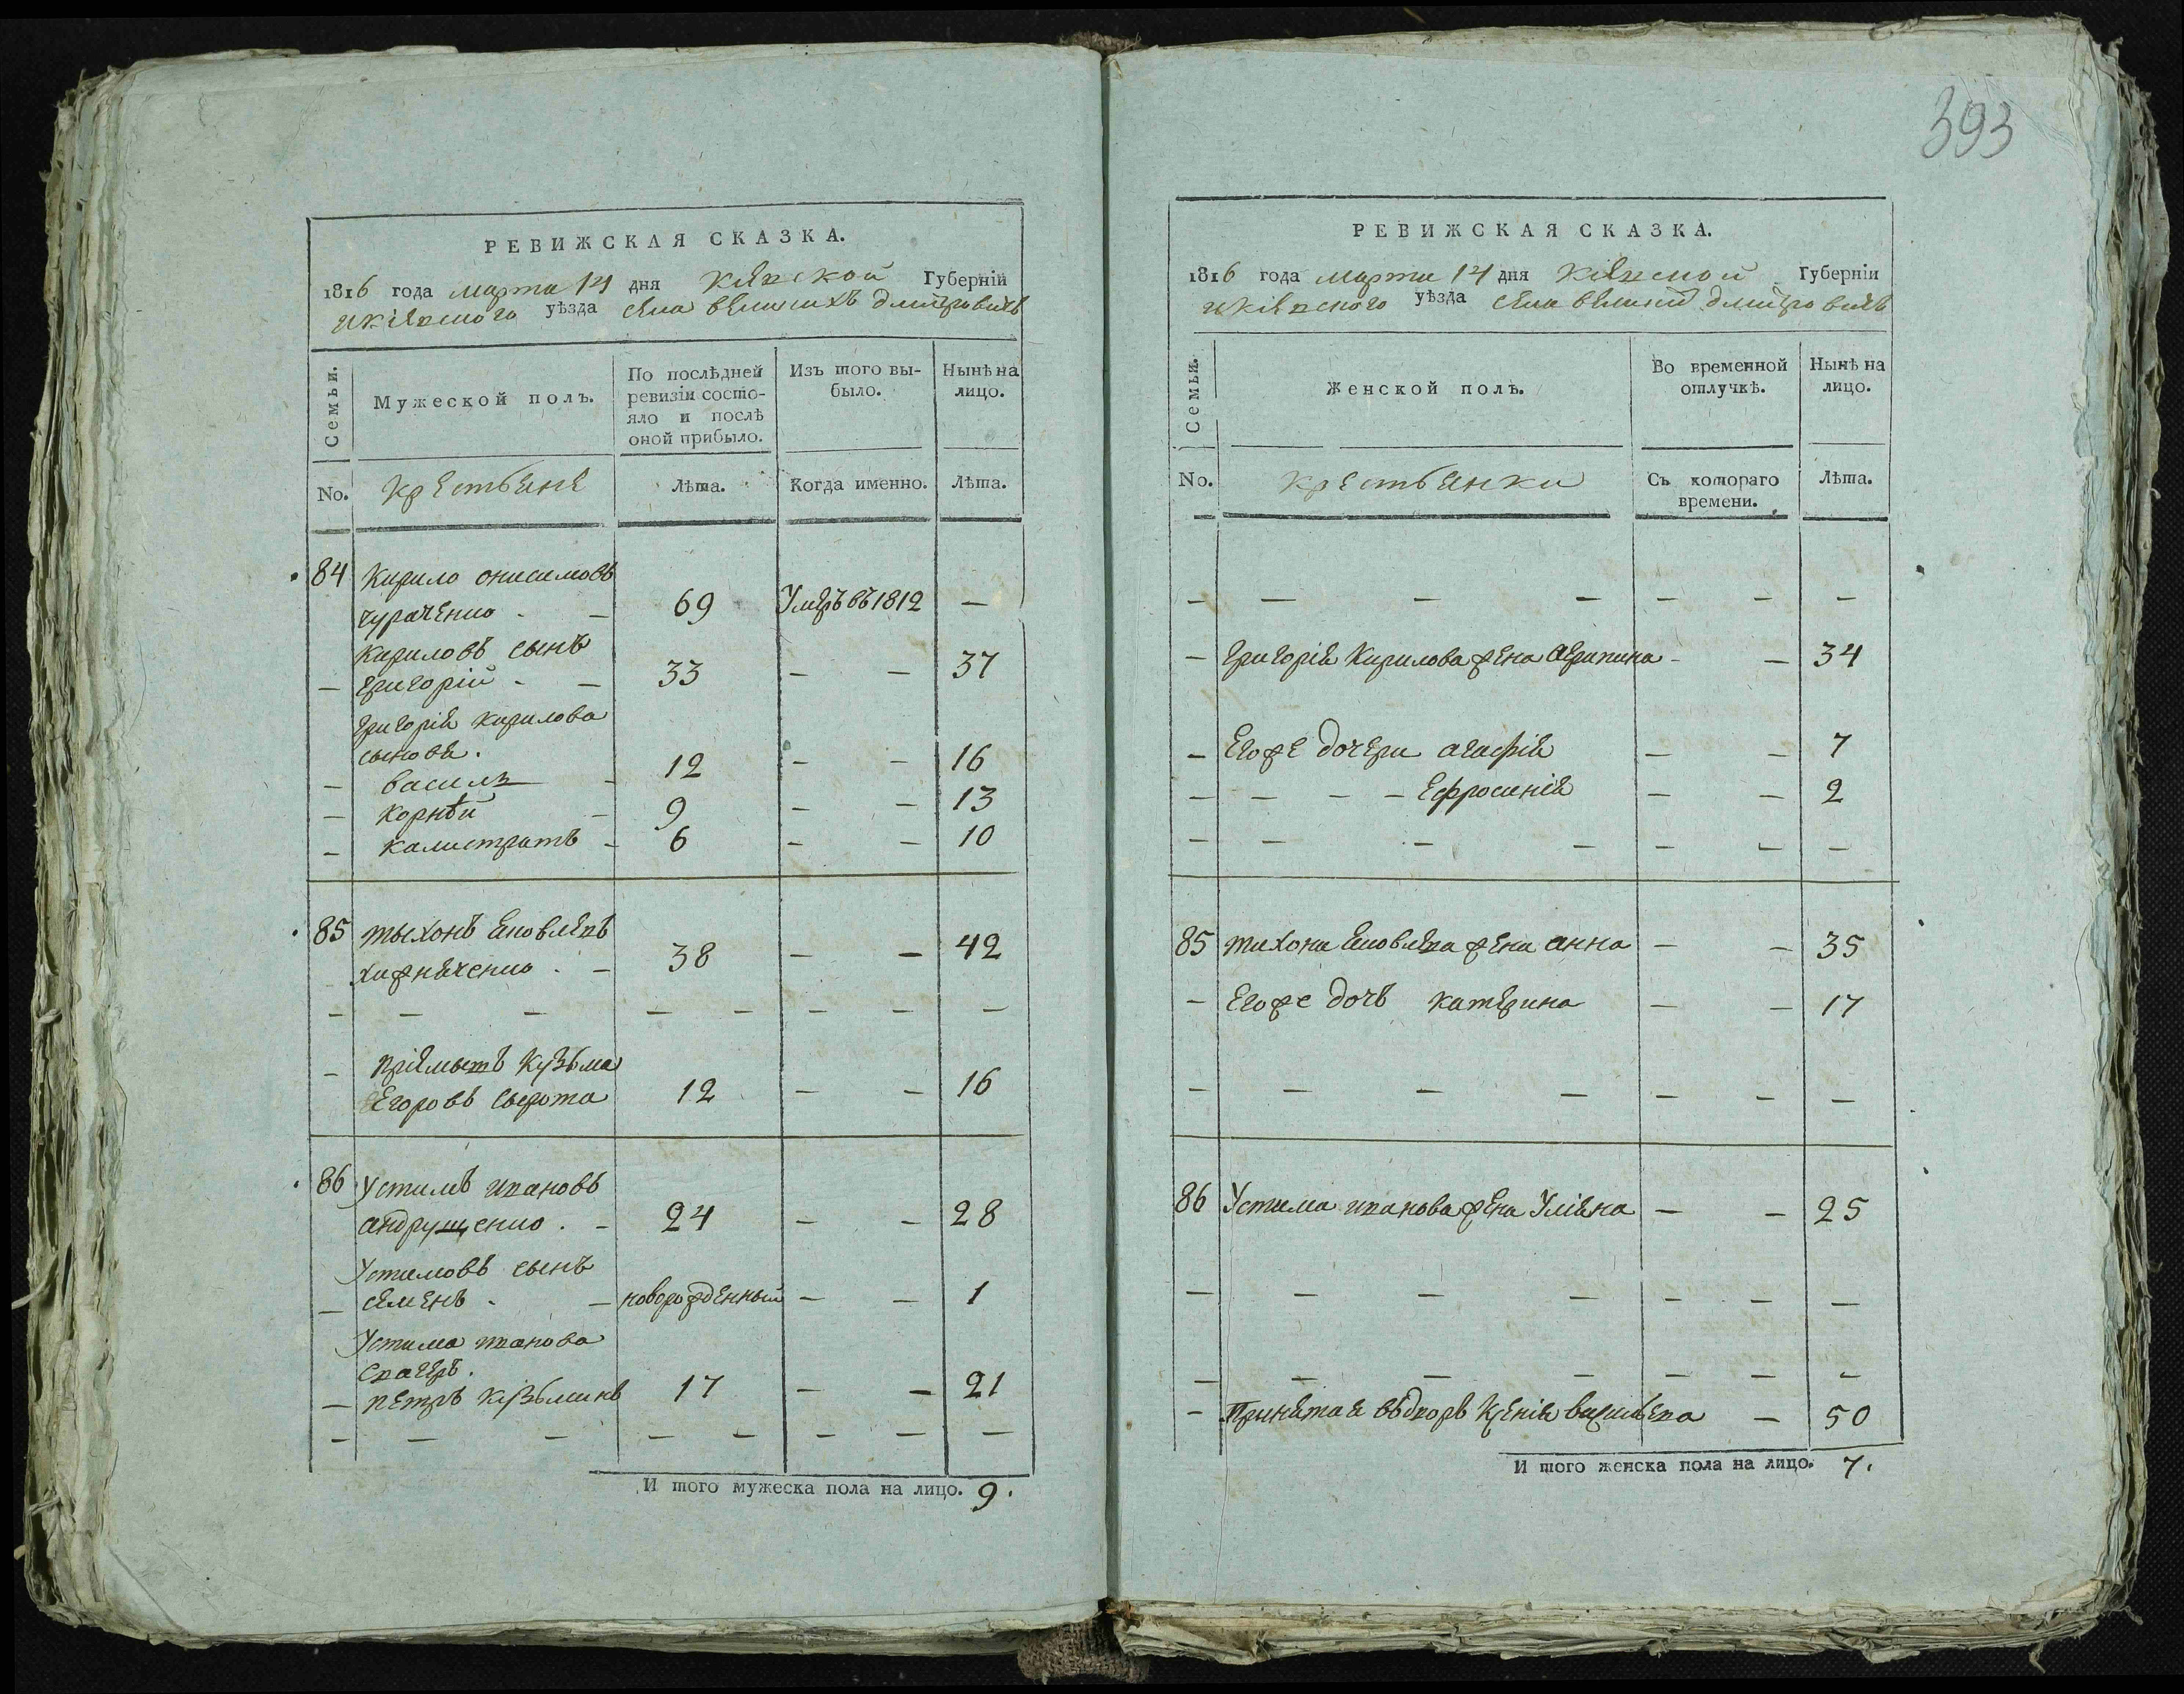 393
РЕВИЖСКАЯ СКАЗКА.
1816 года марта 14 дня Кіевской Губерніи
Кіевского уѣзда села великихъ дмитровичь
Семьи.
Мужеской полъ.
По послѣдней ревизіи состояло и послѣ оной прибыло.
Изъ того выбыло.
Нынѣ на лицо.
No. крестьяне Лѣта. Когда именно. Лѣта.
84 Кирило онисимовъ
чураченко - - 69 Умеръ въ 1812 —
Кириловъ сынъ
— григорій - - 33 — — 37
григорія кирилова
сыновя.
— василь - 12 — — 16
— корнѣй - 9 — — 13
— калистратъ - 6 — — 10
85 тыхонъ яковлевъ
хижняченко - - 38 — — 42
— — — — — — — —
— пріемышъ Кузьма
Егоровъ сырота 12 — — 16
86 Устимъ ивановъ
андрущенко - - 24 — — 28
Устимовъ сынъ
— семенъ - - новорожденный — — 1
Устима иванова
— петръ кузьминъ 17 — — 21
— — — — — — — —
И того мужеска пола на лицо. 9.
РЕВИЖСКАЯ СКАЗКА.
1816 года марта 14 дня Кіевской Губерніи
Кіевского уѣзда села великихъ дмитровичь
Семьи.
Женской полъ.
Во временной отлучкѣ.
Нынѣ на лицо.
No. крестьянки Съ котораго времени. Лѣта.
— — — — — — —
— григорія Кирилова жена агрипина - — 34
— Егоже дочери агафія — — 7
— — — — Ефросинія — — 2
— — — — — — —
85 тихона яковлева жена анна — — 35
— Егоже дочь катерина — — 17
— — — — — — —
86 Устима иванова жена Уліяна — — 25
— — — — — — —
— — — — — — —
— Принятая въ дворъ Ксенія васильева — 50
И того женска пола на лицо. 7.